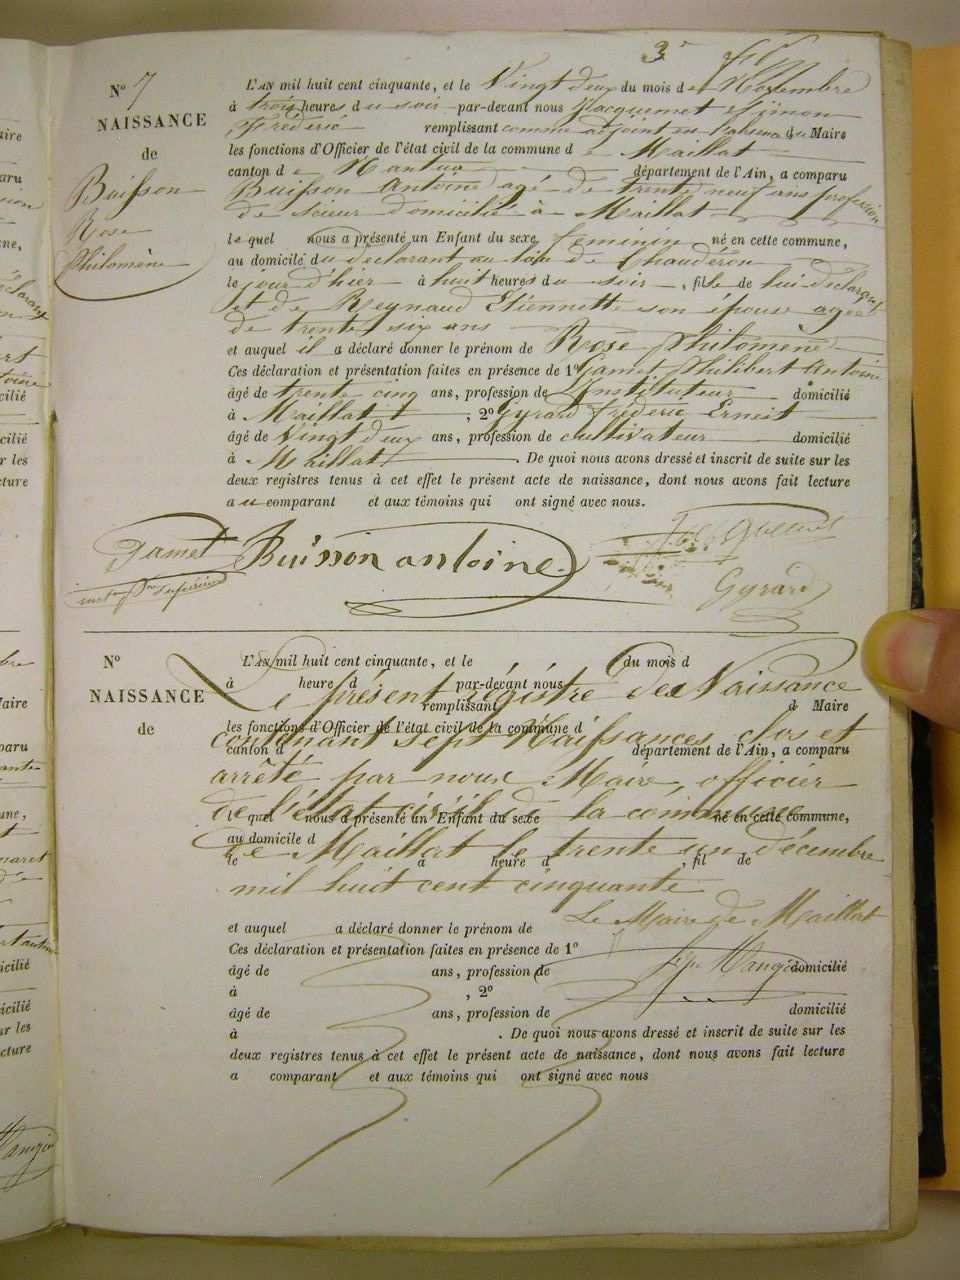 3
N° 7
NAISSANCE
de
Buisson
Rose
Philomène
L'AN mil huit cent cinquante, et le Vingt deux du mois de Novembre
à trois heures du soir par-devant nous Jacquemet Simon
Fréderic remplissant comme adjoint en l'absence du Maire
les fonctions d'Officier de l'état civil de la commune de Maillat
canton de Nantua département de l'Ain, a comparu
Buisson Antoine agé de trente neuf ans profession
de scieur domicilié à Maillat
lequel nous a présenté un Enfant du sexe feminin né en cette commune,
au domicile du déclarant au lieu de Chaudéron
le jour d'hier à huit heures du soir, fille de lui déclarant
et de Reynaud Etiennette son épouse agée
de trente six ans
et auquel il a déclaré donner le prénom de Rose Philomène
Ces déclaration et présentation faites en présence de 1° Gamet Philibert Antoine
âgé de trente cinq ans, profession de Instituteur domicilié
à Maillat, 2° Gyrard Fréderic Ernest
âgé de Vingt deux ans, profession de cultivateur domicilié
à Maillat. De quoi nous avons dressé et inscrit de suite sur les
deux registres tenus à cet effet le présent acte de naissance, dont nous avons fait lecture
au comparant et aux témoins qui ont signé avec nous.
Gamet Buisson antoine
Gyrard
N°
NAISSANCE
de
L'AN mil huit cent cinquante, et le du mois d
à heure d par-devant nous
Le présent régistre des Naissance
remplissant d Maire
les fonctions d'Officier de l'état civil de la commune d
contenant sept Naissances clos et
canton d département de l'Ain, a comparu
arrêté par nous Maire, officier
de l'état civil de la commune
l quel nous a présenté un Enfant du sexe né en cette commune,
au domicile d
de Maillat le trente un décembre
le à heure d , fil de
mil huit cent cinquante
Le Maire de Maillat
et auquel a déclaré donner le prénom de
Ces déclaration et présentation faites en présence de 1°
âgé de ans, profession de domicilié
à , 2°
âgé de ans, profession de domicilié
à . De quoi nous avons dressé et inscrit de suite sur les
deux registres tenus à cet effet le présent acte de naissance, dont nous avons fait lecture
a comparant et aux témoins qui ont signé avec nous